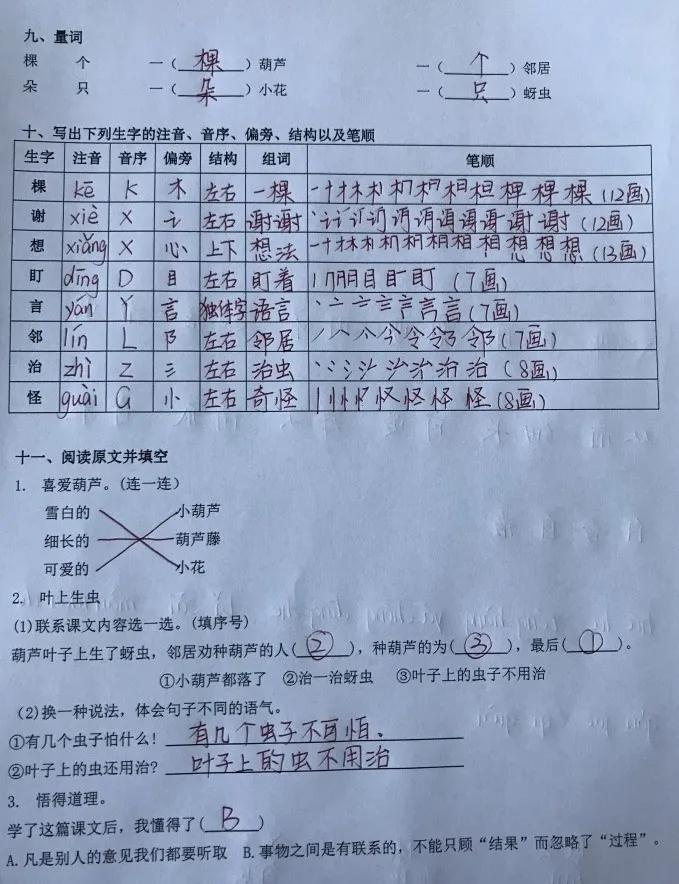 九、量词
棵 个 一（棵）葫芦 一（个）邻居
朵 只 一（朵）小花 一（只）蚜虫
十、写出下列生字的注音、音序、偏旁、结构以及笔顺
生字 注音 音序 偏旁 结构 组词 笔顺
棵 kē K 木 左右 一棵 (12画)
谢 xiè X 讠 左右 谢谢 (12画)
想 xiǎng X 心 上下 想法 (13画)
盯 dīng D 目 左右 盯着 (7画)
言 yán Y 言 独体字 语言 (7画)
邻 lín L 阝 左右 邻居 (7画)
治 zhì Z 氵 左右 治虫 (8画)
怪 guài G 忄 左右 奇怪 (8画)
十一、阅读原文并填空
1. 喜爱葫芦。(连一连)
雪白的 小葫芦
细长的 葫芦藤
可爱的 小花
2. 叶上生虫
(1)联系课文内容选一选。(填序号)
葫芦叶子上生了蚜虫，邻居劝种葫芦的人(②)，种葫芦的为(③)，最后(①)。
①小葫芦都落了 ②治一治蚜虫 ③叶子上的虫子不用治
(2)换一种说法，体会句子不同的语气。
①有几个虫子怕什么！有几个虫子不可怕。
②叶子上的虫还用治？叶子上的虫不用治
3. 悟得道理。
学了这篇课文后，我懂得了(B)
A.凡是别人的意见我们都要听取 B.事物之间是有联系的，不能只顾“结果”而忽略了“过程”。